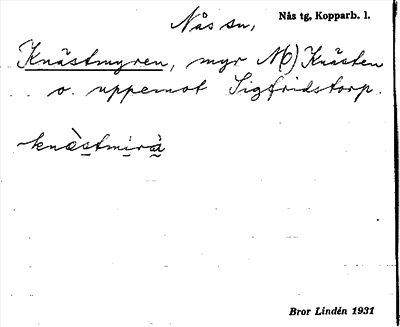 Nås sn, Nås tg, Kopparb. l.
Knästmyren, myr N(O) Knästen
o. uppemot Sigfridstorp.
knæ̀stmirà
Bror Lindén 1931